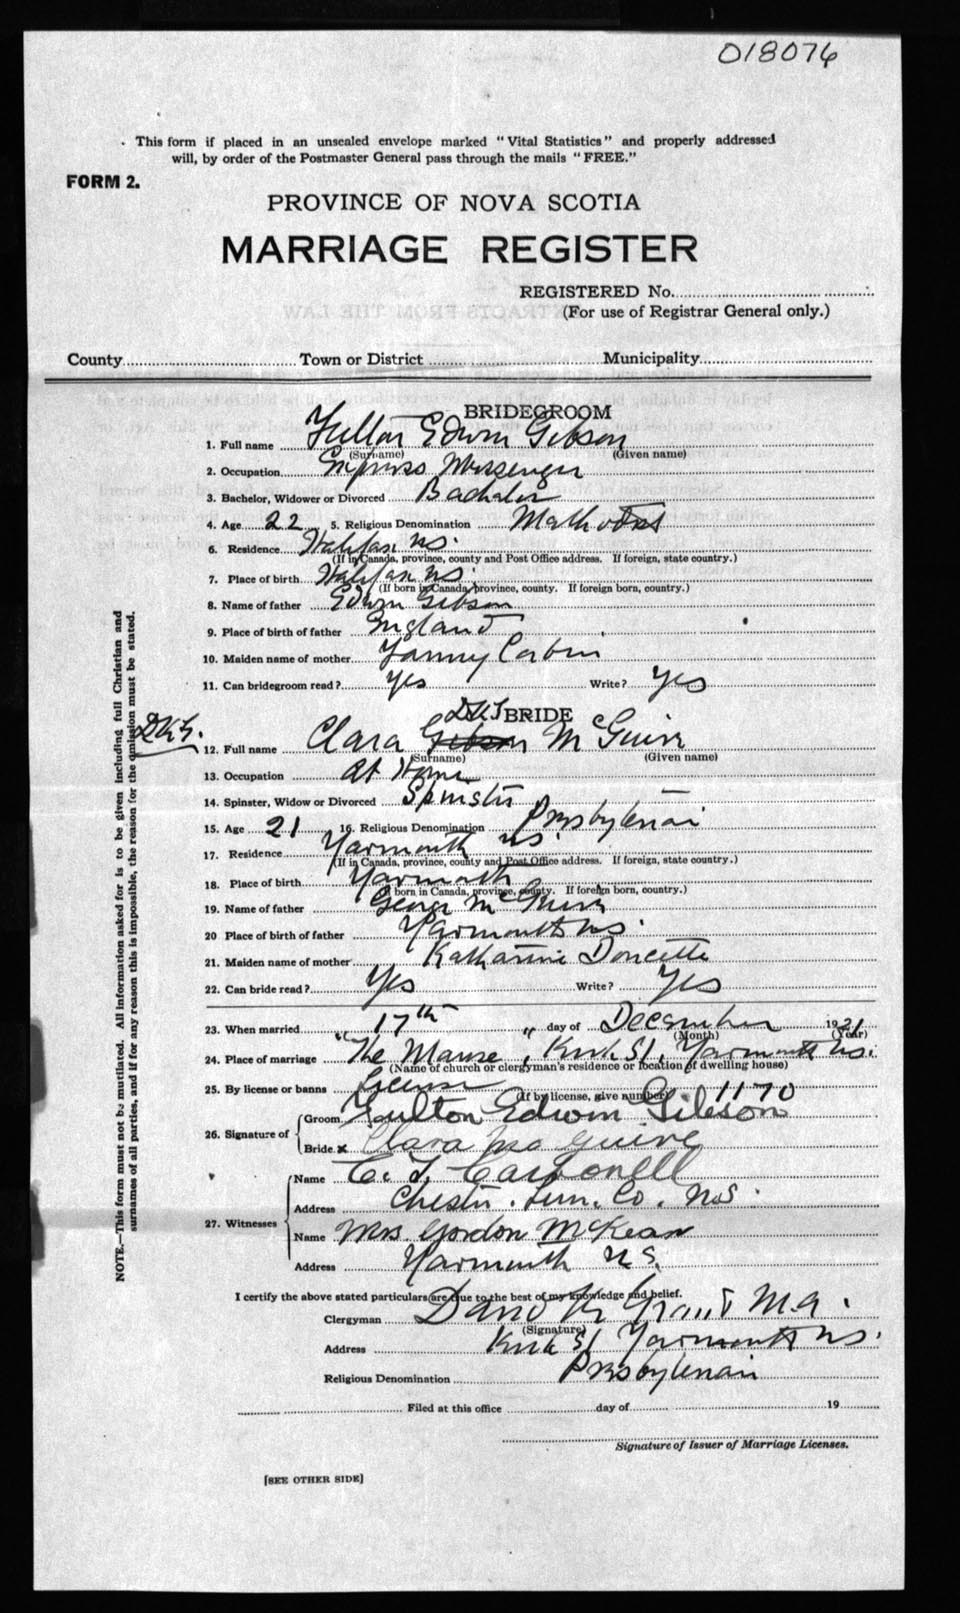 018076
This form if placed in an unsealed envelope marked "Vital Statistics" and properly addressed
will, by order of the Postmaster General pass through the mails "FREE."
FORM 2.
PROVINCE OF NOVA SCOTIA
MARRIAGE REGISTER
REGISTERED No.
(For use of Registrar General only.)
County Town or District Municipality
BRIDEGROOM
1. Full name Fulton Edwin Gibson
(Surname) (Given name)
2. Occupation Express Messenger
3. Bachelor, Widower or Divorced Bachelor
4. Age 22 5. Religious Denomination Methodist
6. Residence Halifax NS.
(If in Canada, province, county and Post Office address. If foreign, state country.)
7. Place of birth Halifax NS.
(If born in Canada, province, county. If foreign born, country.)
8. Name of father Edwin Gibson
9. Place of birth of father England
10. Maiden name of mother Fanny Corbin
11. Can bridegroom read? Yes Write? Yes
D.K.G. BRIDE
D.K.G.
12. Full name Clara Gibson McGuire
(Surname) (Given name)
13. Occupation At Home
14. Spinster, Widow or Divorced Spinster
15. Age 21 16. Religious Denomination Presbyterian
17. Residence Yarmouth NS.
(If in Canada, province, county and Post Office address. If foreign, state country.)
18. Place of birth Yarmouth
born in Canada, province, county. If foreign born, country.)
19. Name of father George McGuire
20 Place of birth of father Yarmouth NS.
21. Maiden name of mother Katharine Doucette
22. Can bride read? Yes Write? Yes
23. When married "17th " day of December 1921
(Month) (Year)
24. Place of marriage "The Manse, Kirk St, Yarmouth NS.
(Name of church or clergyman's residence or location of dwelling house)
25. By license or banns License (If by license, give number) 1170
26. Signature of Groom Foulton Edwin Gibson
Bride x Clara Mc Guire
27. Witnesses Name C. T. Carbonell
Address Chester. Lun. Co. N.S.
Name Mrs. Gordon McKean
Address Yarmouth N.S.
I certify the above stated particulars are true to the best of my knowledge and belief.
Clergyman David K. Grant M.A.
(Signature)
Address Kirk St Yarmouth NS.
Religious Denomination Presbyterian
Filed at this office day of 19
Signature of Issuer of Marriage Licenses.
[SEE OTHER SIDE]
NOTE.—This form must not be mutilated. All information asked for is to be given including full Christian and
surnames of all parties, and if for any reason this is impossible, the reason for the omission must be stated.